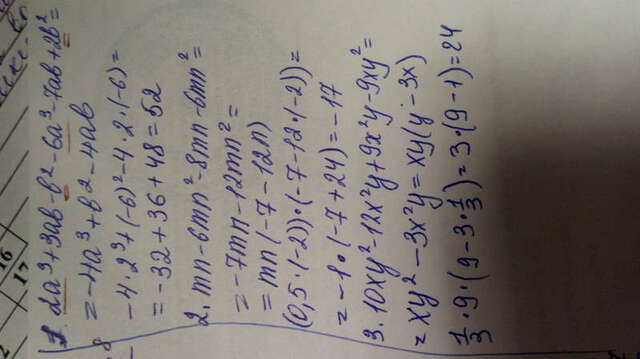 17
8
1. 2a³+3ab-b²-6a³-7ab+2b²=
=-4a³+b²-4ab
-4·2³+(-6)²-4·2·(-6)=
=-32+36+48=52
2. mn-6mn²-8mn-6mn²=
=-7mn-12mn²=
=mn(-7-12n)
(0,5·(-2))·(-7-12·(-2))=
=-1·(-7+24)=-17
3. 10xy²-12x²y+9x²y-9xy²=
=xy²-3x²y=xy(y-3x)
1/3·9·(9-3·1/3)=3·(9-1)=24